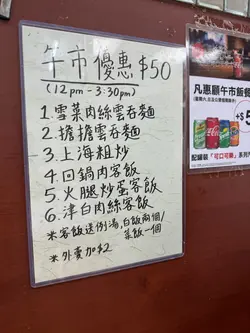 午市優惠 $50
(12pm - 3:30pm)
1. 雪菜肉絲雲吞麵
2. 擔擔雲吞麵
3. 上海粗炒
4. 回鍋肉客飯
5. 火腿炒蛋客飯
6. 津白肉絲客飯
※客飯送例湯,白飯兩個/
菜飯一個
※外賣加$2
凡惠顧午市飯餐
+$5
配罐裝「可口可樂」系列